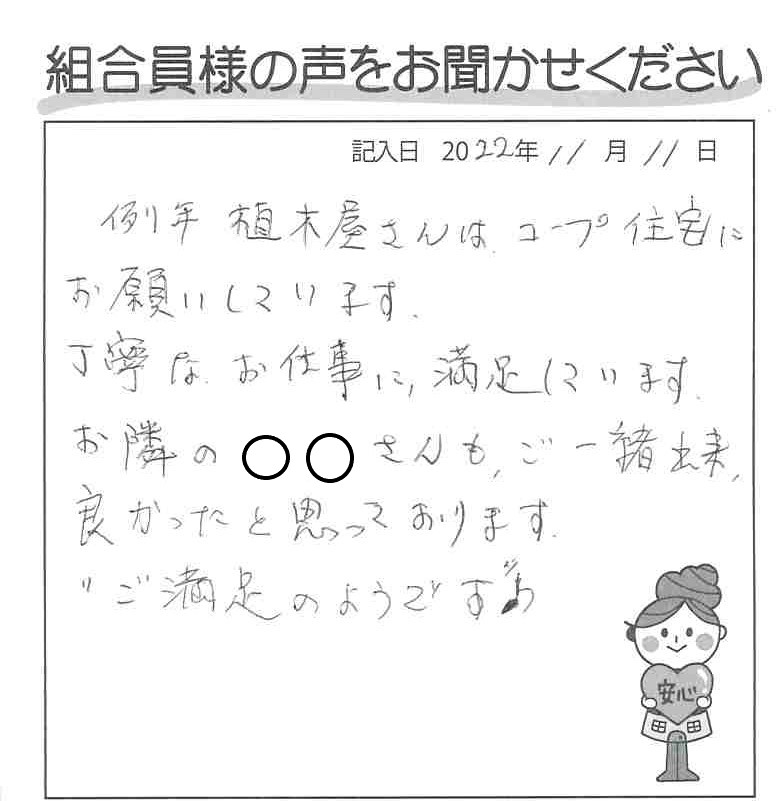 組合員様の声をお聞かせください
記入日 2022年11月11日
例年 植木屋さんは、コープ住宅に
お願いしています。
丁寧な お仕事に、満足しています。
お隣の○○さんも、ご一緒出来、
良かったと思っております。
"ご満足のようです"
安心